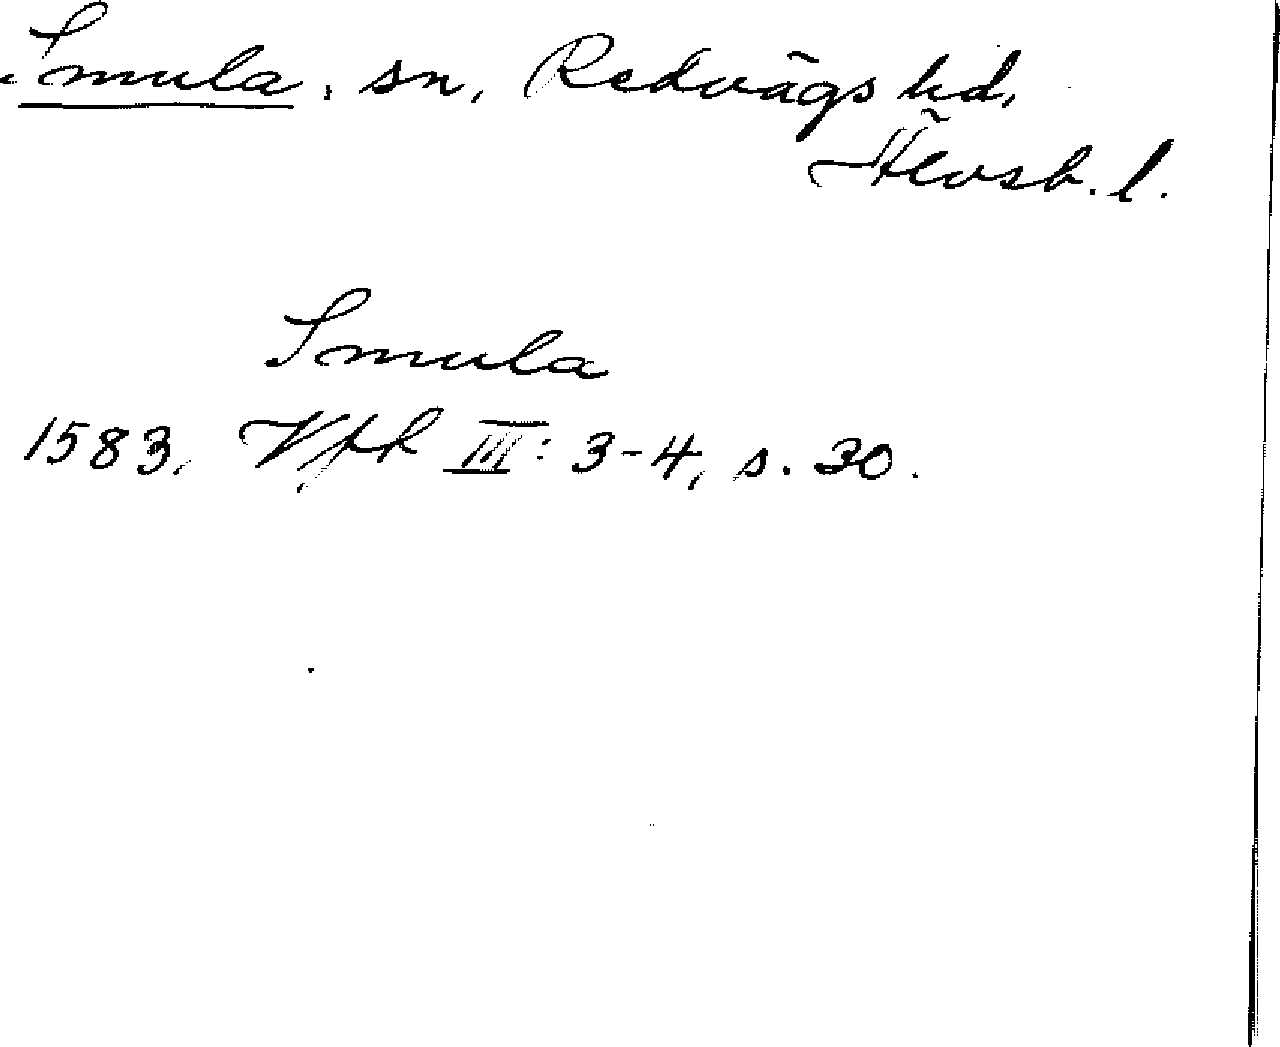 Smula, sn, Redvägs hd,
Älvsb. l.
Smula
1583, Vfk III: 3-4, s. 30.